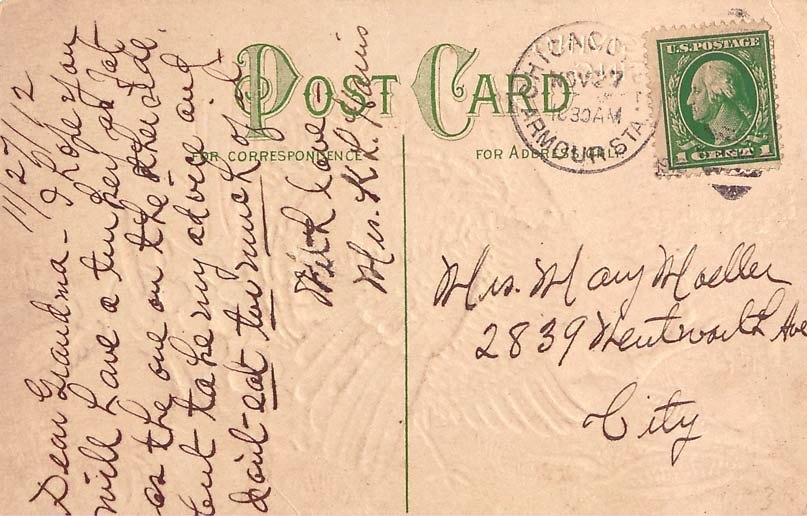 POST CARD
FOR CORRESPONDENCE
FOR ADDRESS ONLY
CHICAGO
NOV 27
1030AM
ARMOUR STA.
U.S. POSTAGE
1 CENT 1
11/27/12
Dear Grandma - I hope you
will have a turkey as fat
as the one on the other side.
but take my advice and
don't eat too much of it.
With love
Mrs.
Mrs. Mary Moeller
2839 Wentworth Ave
City